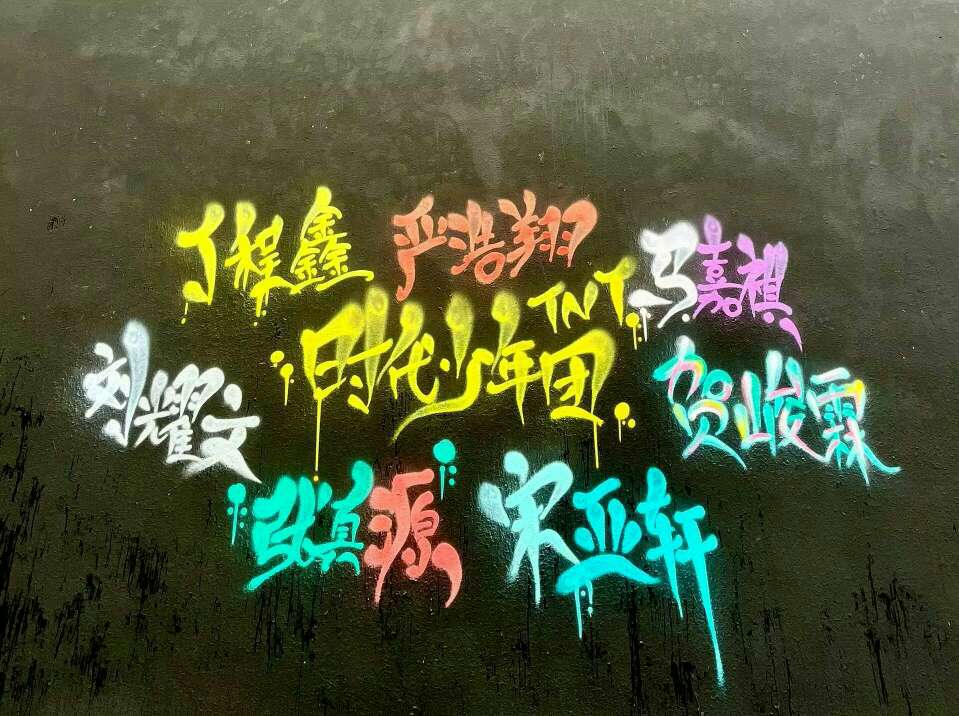 丁程鑫 严浩翔 马嘉祺
TNT
时代少年团
刘耀文 贺峻霖
张真源 宋亚轩